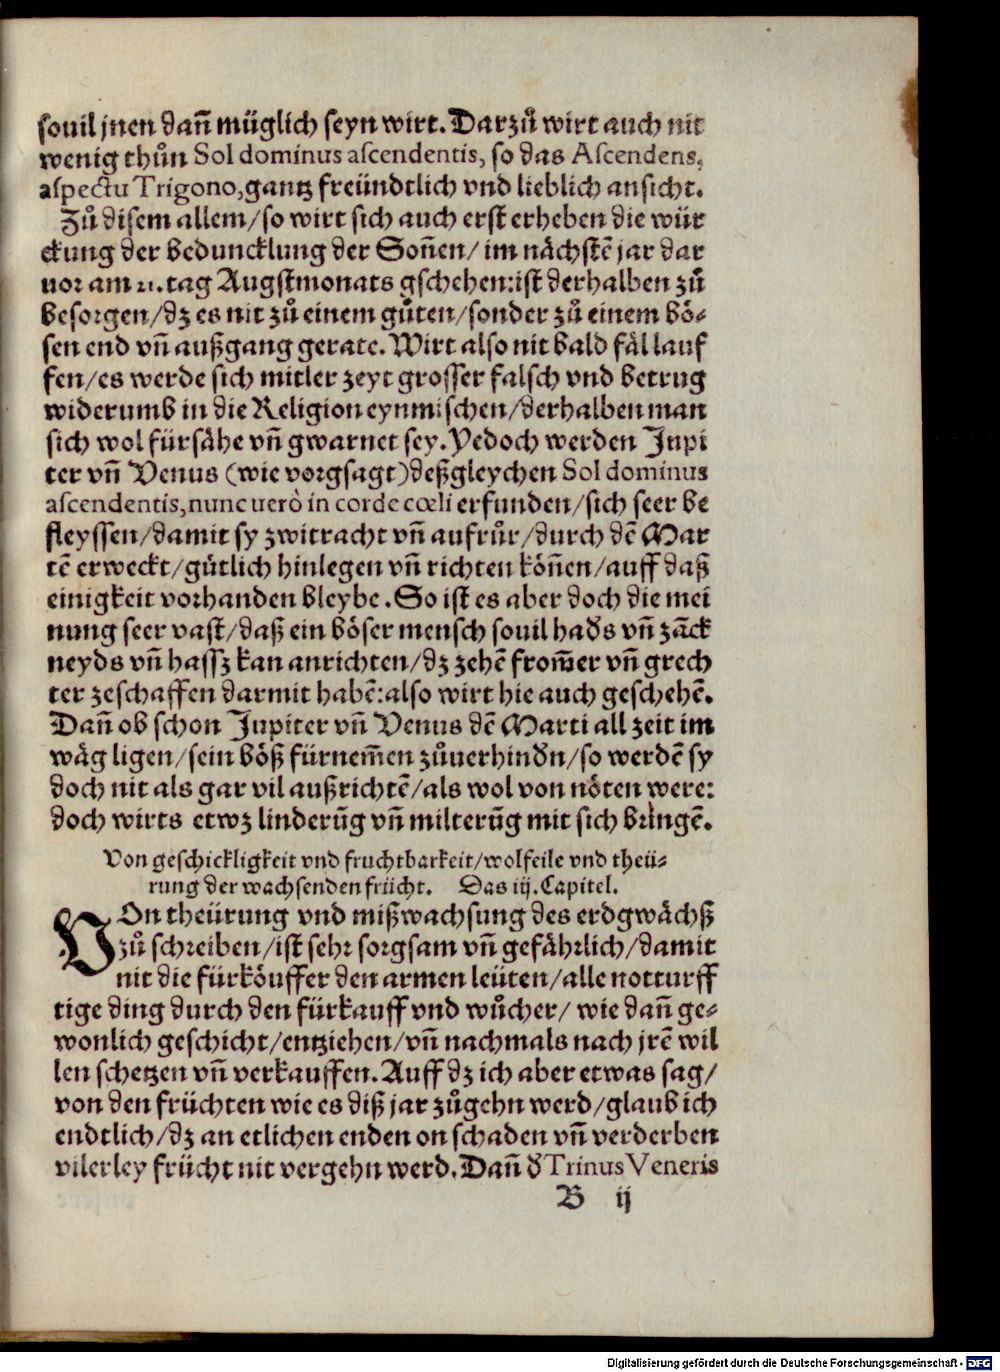 souil jnen dañ müglich seyn wirt. Darzů wirt auch nit
wenig thůn Sol dominus ascendentis, so das Ascendens,
aspectu Trigono, gantz freündtlich vnd lieblich ansicht.
Zů disem allem/ so wirt sich auch erst erheben die wür
ckung der beduncklung der Soñen/ im nächstē jar dar
uor am 21. tag Augstmonats gschehen: ist derhalben zů
besorgen/ dz es nit zů einem gůten/ sonder zů einem bö⸗
sen end vñ außgang gerate. Wirt also nit bald fäl lauf
fen/ es werde sich mitler zeyt grosser falsch vnd betrug
widerumb in die Religion eynmischen/ derhalben man
sich wol fürsähe vñ gwarnet sey. Yedoch werden Jupi
ter vñ Venus (wie vorgsagt) deßgleychen Sol dominus
ascendentis, nunc uerò in corde cœli erfunden/ sich seer be
fleyssen/ damit sy zwitracht vñ aufrůr/ durch dē Mar
tē erweckt/ gütlich hinlegen vñ richten köñen/ auff daß
einigkeit vorhanden bleybe. So ist es aber doch die mei
nung seer vast/ daß ein böser mensch souil haðs vñ zāck
neyds vñ hassz kan anrichten/ dz zehē from̃er vñ grech
ter zeschaffen darmit habē: also wirt hie auch geschehē.
Dañ ob schon Jupiter vñ Venus dē Marti all zeit im
wäg ligen/ sein böß fürnem̃en zůuerhinðn/ so werdē sy
doch nit als gar vil außrichtē/ als wol von nöten were:
doch wirts etwz linderūg vñ milterūg mit sich bringē.
Von geschickligkeit vnd fruchtbarkeit/ wolfeile vnd theü⸗
rung der wachsenden frücht. Das iij. Capitel.
VOn theürung vnd mißwachsung des erdgwächß
zů schreiben/ ist sehr sorgsam vñ gefährlich/ damit
nit die fürköuffer den armen leüten/ alle notturff
tige ding durch den fürkauff vnd wůcher/ wie dañ ge⸗
wonlich geschicht/ entziehen/ vñ nachmals nach jrē wil
len schetzen vñ verkauffen. Auff dz ich aber etwas sag/
von den früchten wie es diß jar zůgehn werd/ glaub ich
endtlich/ dz an etlichen enden on schaden vñ verderben
vilerley frücht nit vergehn werd. Dañ ð Trinus Veneris
B ij
Digitalisierung gefördert durch die Deutsche Forschungsgemeinschaft - DFG